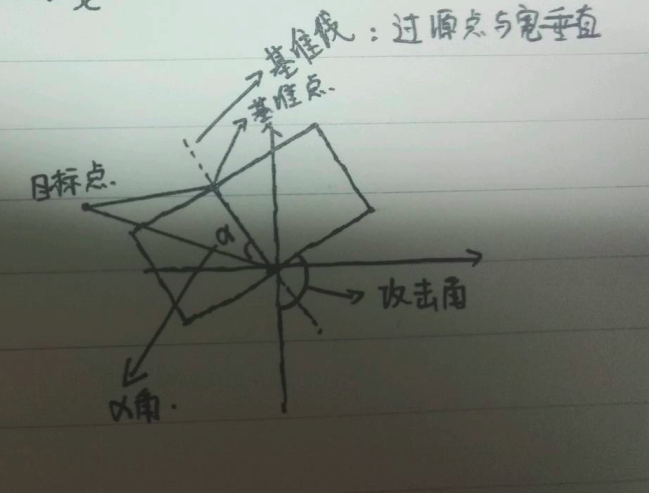 基准线：过原点与宽垂直
基准点.
目标点.
α
攻击角
α角.